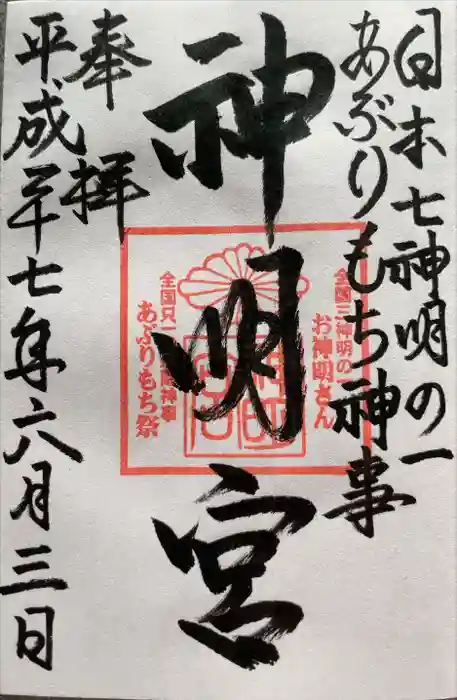 日本七神明の一
あぶりもち神事
神明宮
奉拝
平成廿七年六月三日
全国三神明の一
お神明さん
全国只一
神事
あぶりもち祭